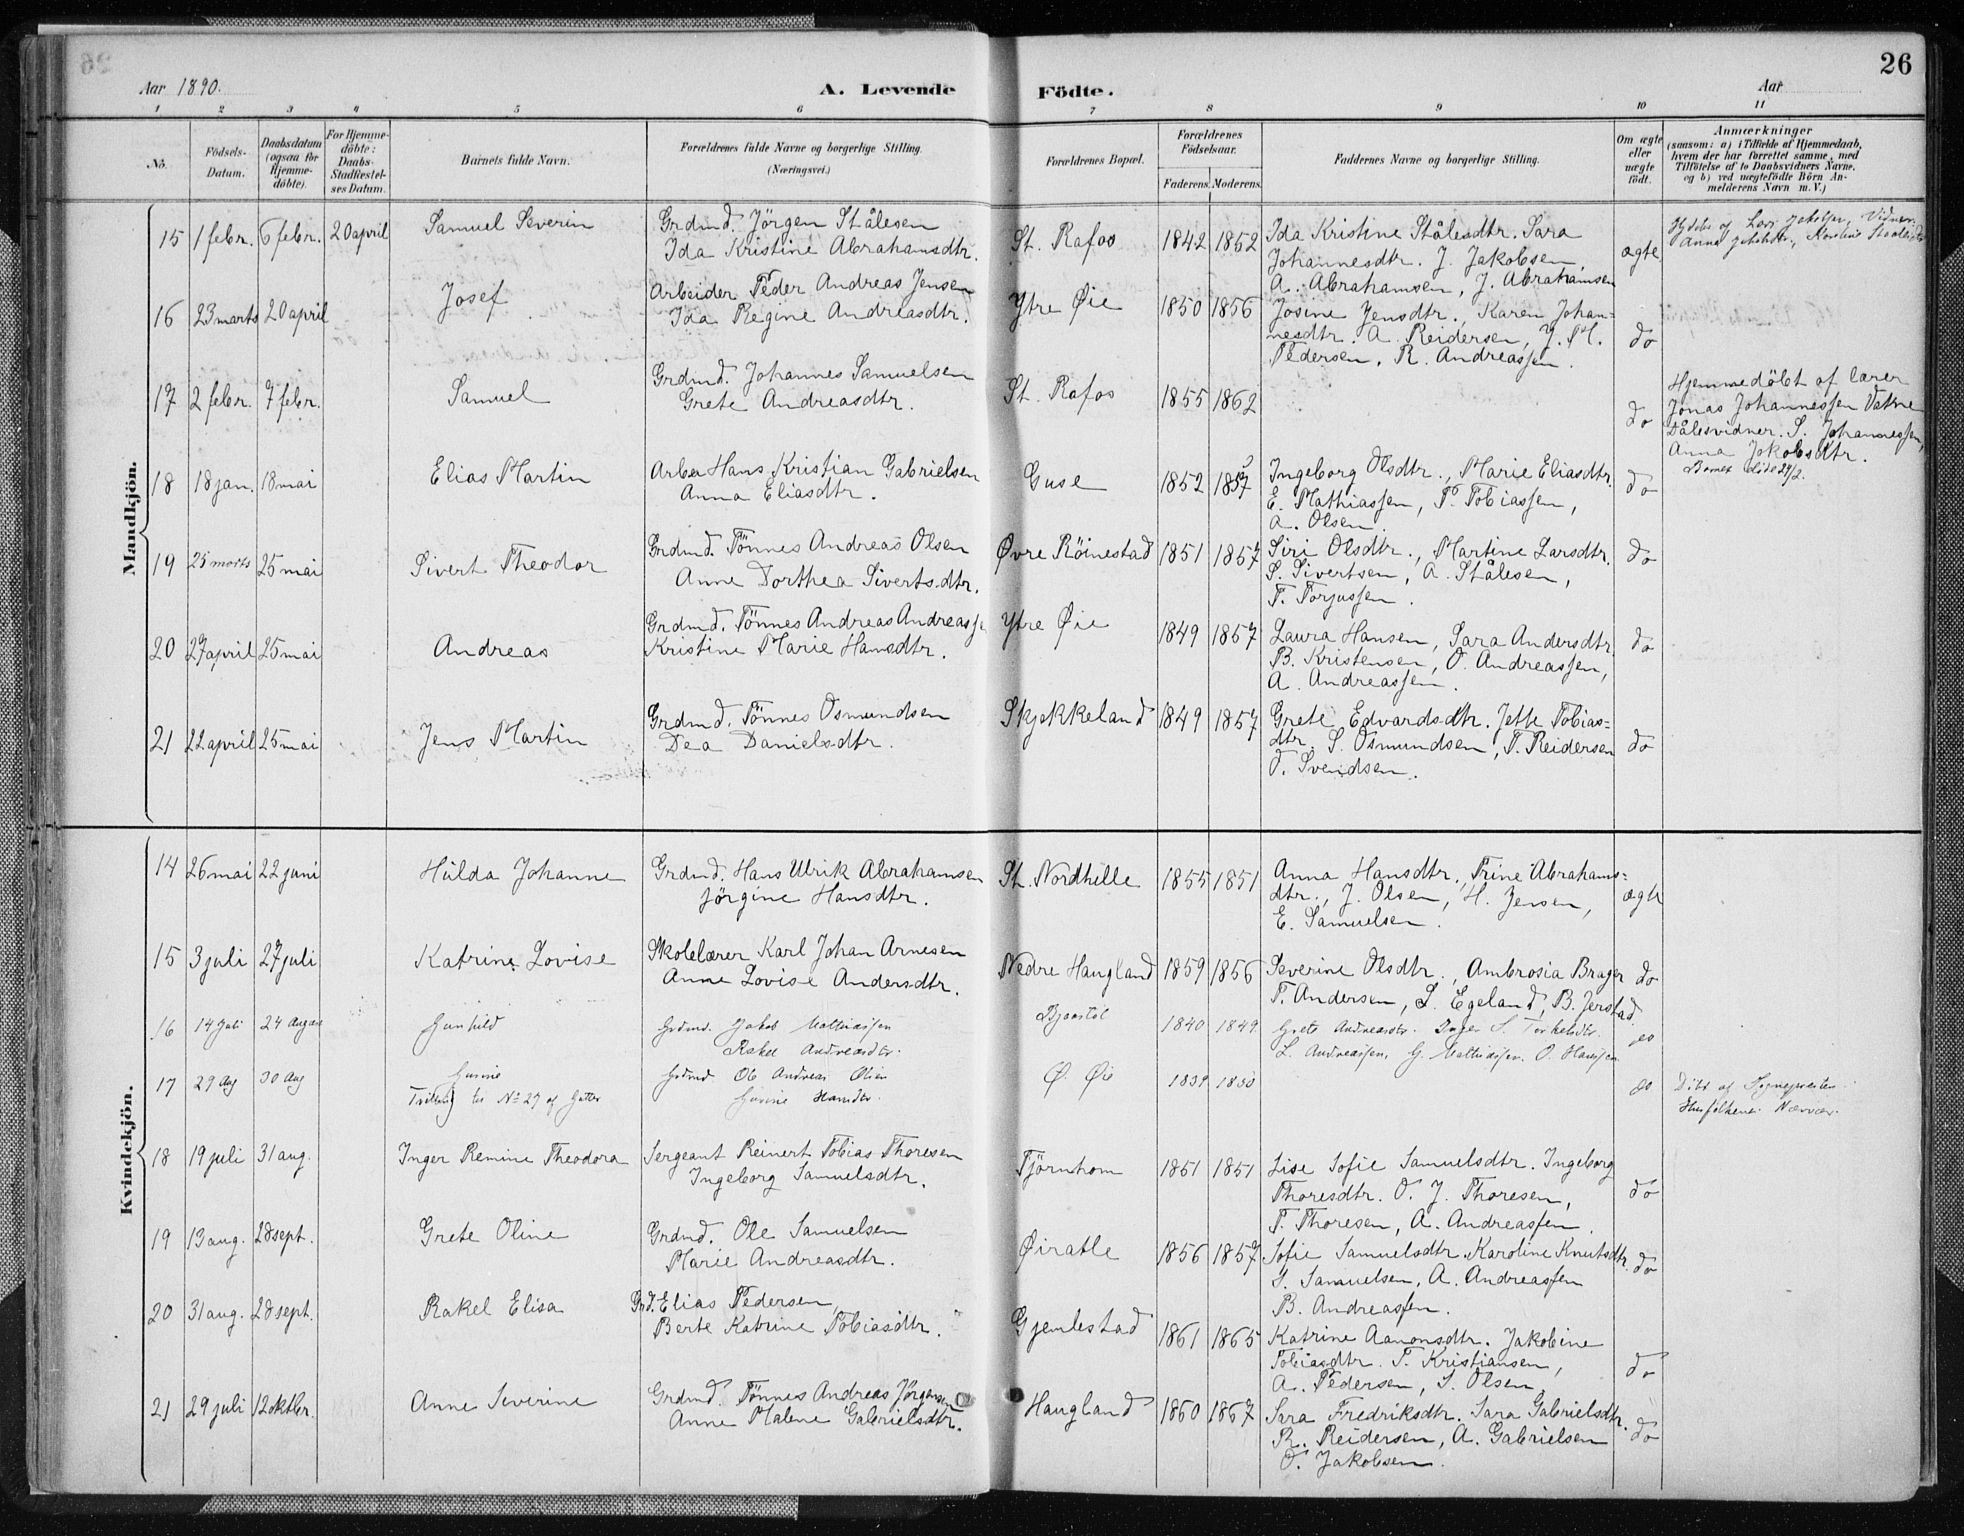 Aar 1890.
A. Levende Födte.
Aar
26
1 2 3 4 5 6 7 8 9 10 11
No.
Födsels-Datum.
Daabsdatum (ogsaa for Hjemme-döbte).
For Hjemme-döbte: Daabs-Stadfæstel-ses Datum.
Barnets fulde Navn.
Forældrenes fulde Navne og borgerlige Stilling. (Næringsvei.)
Forældrenes Bopæl.
Forældrenes Födselsaar.
Faderens. Moderens.
Faddernes Navne og borgerlige Stilling.
Om ægte eller uægte födt.
Anmærkninger (saasom: a) i Tilfælde af Hjemmedaab, hvem der har forrettet samme, med Tilföielse af to Daabsvidners Navne, og b) ved uægtefödte Börn An-melderens Navn m. V.)
Mandkjön.
15 1 febr. 6 febr. 20 april Samuel Severin Grdmd. Jörgen Stålesen St. Rafos 1842 1852 Ida Kristine Stålesdtr. Sara ægte
Ida Kristine Abrahamsdtr. Johannesdtr. J. Jakobsen,
A. Abrahamsen, J. Abrahamsen
16 23 marts 20 april Josef Arbeider Peder Andreas Jensen Ytre Øie 1850 1856 Josine Jensdtr., Karen Johan- do
Ida Regine Andreasdtr. nesdtr. A. Reidersen, J. M.
Pedersen, R. Andreassen.
17 2 febr. 7 febr. Samuel Grdmd. Johannes Samuelsen St. Rafos 1855 1862 do Hjemmedöbt af lærer
Grete Andreasdtr. Jonas Johannessen Vatne
Dåbsvidner. S. Johannessen,
Anna Jakobsdtr.
Barnet döde 24/2.
18 18 jan. 18 mai Elias Martin Arber Hans Kristian Gabrielsen Guse 1852 1857 Ingeborg Olsdtr., Marie Eliasdtr. do
Anna Eliasdtr. E. Mathiassen, T. Tobiassen,
A. Olsen.
19 25 marts 25 mai Sivert Theodor Grdmd. Tönnes Andreas Olsen Øvre Röinestad 1851 1857 Siri Olsdtr., Martine Larsdtr. do
Anne Dorthea Sivertsdtr. S. Sivertsen, A. Stålesen,
T. Torjussen.
20 27 april 25 mai Andreas Grdmd. Tönnes Andreas Andreassen Ytre Øie 1849 1857 Laura Hansen, Sara Andersdtr. do
Kristine Marie Hansdtr. B. Kristensen, O. Andreassen,
A. Andreassen.
21 22 april 25 mai Jens Martin Grdmd. Tönnes Osmundsen Skjekkeland 1849 1857 Grete Edvardsdtr. Jette Tobias- do
Dea Danielsdtr. dtr. S. Osmundsen, T. Reidersen
O. Svendsen.
Kvindekjön.
14 26 mai 22 juni Hulda Johanne Grdmd. Hans Ulrik Abrahamsen St. Nordhelle 1855 1851 Anna Hansdtr., Trine Abrahams- ægte
Jörgine Hansdtr. dtr., J. Olsen, H. Jensen,
E. Samuelsen.
15 3 juli 27 juli Katrine Lovise Skolelærer Karl Johan Arnesen Nedre Haugland 1859 1856 Severine Olsdtr., Ambrosia Brager do
Anne Lovise Andersdtr. T. Andersen, L. Egeland, B. Jerstad.
16 14 Juli 24 August Gunhild Grdmd. Jakob Mathiassen 1840 1849 Grete Andreasdtr. Inger S. Torkelsdtr. do
Rakel Andreasdtr. L. Andreassen, G. Mathiassen, O. Hanssen
17 29 Aug 30 Aug Gurine Grdmd Ole Andreas Olsen Ø. Øie 1839 1850 do Döbt af Sognepresten
Tvilling til No 27 af Gutter Gurine Hansdtr. Husfolkene Nærvær.
18 19 juli 31 aug. Inger Remine Theodora Sergeant Reinert Tobias Thoresen Tjörnhom 1851 1851 Lise Sofie Samuelsdtr. Ingeborg do
Ingeborg Samuelsdtr. Thoresdtr. O. J. Thoresen,
T. Thoresen, A. Andreassen.
19 13 aug. 28 sept. Grete Oline Grdmd. Ole Samuelsen Øiratle 1856 1857 Sofie Samuelsdtr. Karoline Knutsdtr. do
Marie Andreasdtr. S. Samuelsen, A. Andreassen
B. Andreassen.
20 31 aug. 28 sept. Rakel Elisa Grd. Elias Pedersen, Gjemlestad 1861 1865 Katrine Aanonsdtr. Jakobine do
Berte Katrine Tobiasdtr. Tobiasdtr. T. Kristiansen,
A. Pedersen, S. Olsen
21 29 juli 12 oktbr. Anne Severine Grdmd. Tönnes Andreas Jörgensen Haugland 1860 1867 Sara Fredriksdtr. Sara Gabrielsdtr. do
Anne Malene Gabrielsdtr. R. Reidersen, A. Gabrielsen
O. Jakobsen.